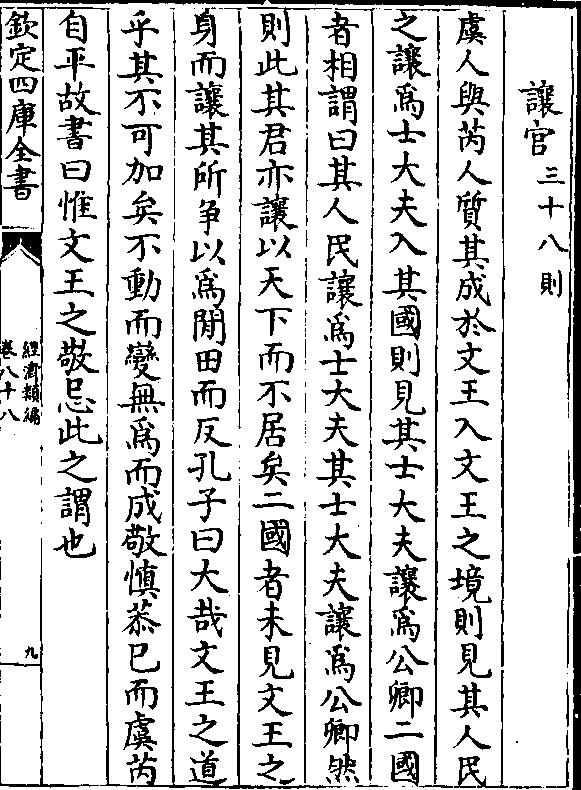 讓官三十八則
虞人與芮人質其成於文王入文王之境則見其人民
之讓爲士大夫入其國則見其士大夫讓爲公卿二國
者相謂曰其人民讓爲士大夫其士大夫讓爲公卿然
則此其君亦讓以天下而不居矣二國者未見文王之
身而讓其所爭以爲閒田而反孔子曰大哉文王之道
乎其不可加矣不動而變無爲而成敬慎恭已而虞芮
自平故書曰惟文王之敬忌此之謂也
欽定四庫全書
經濟類編
卷八十八
九